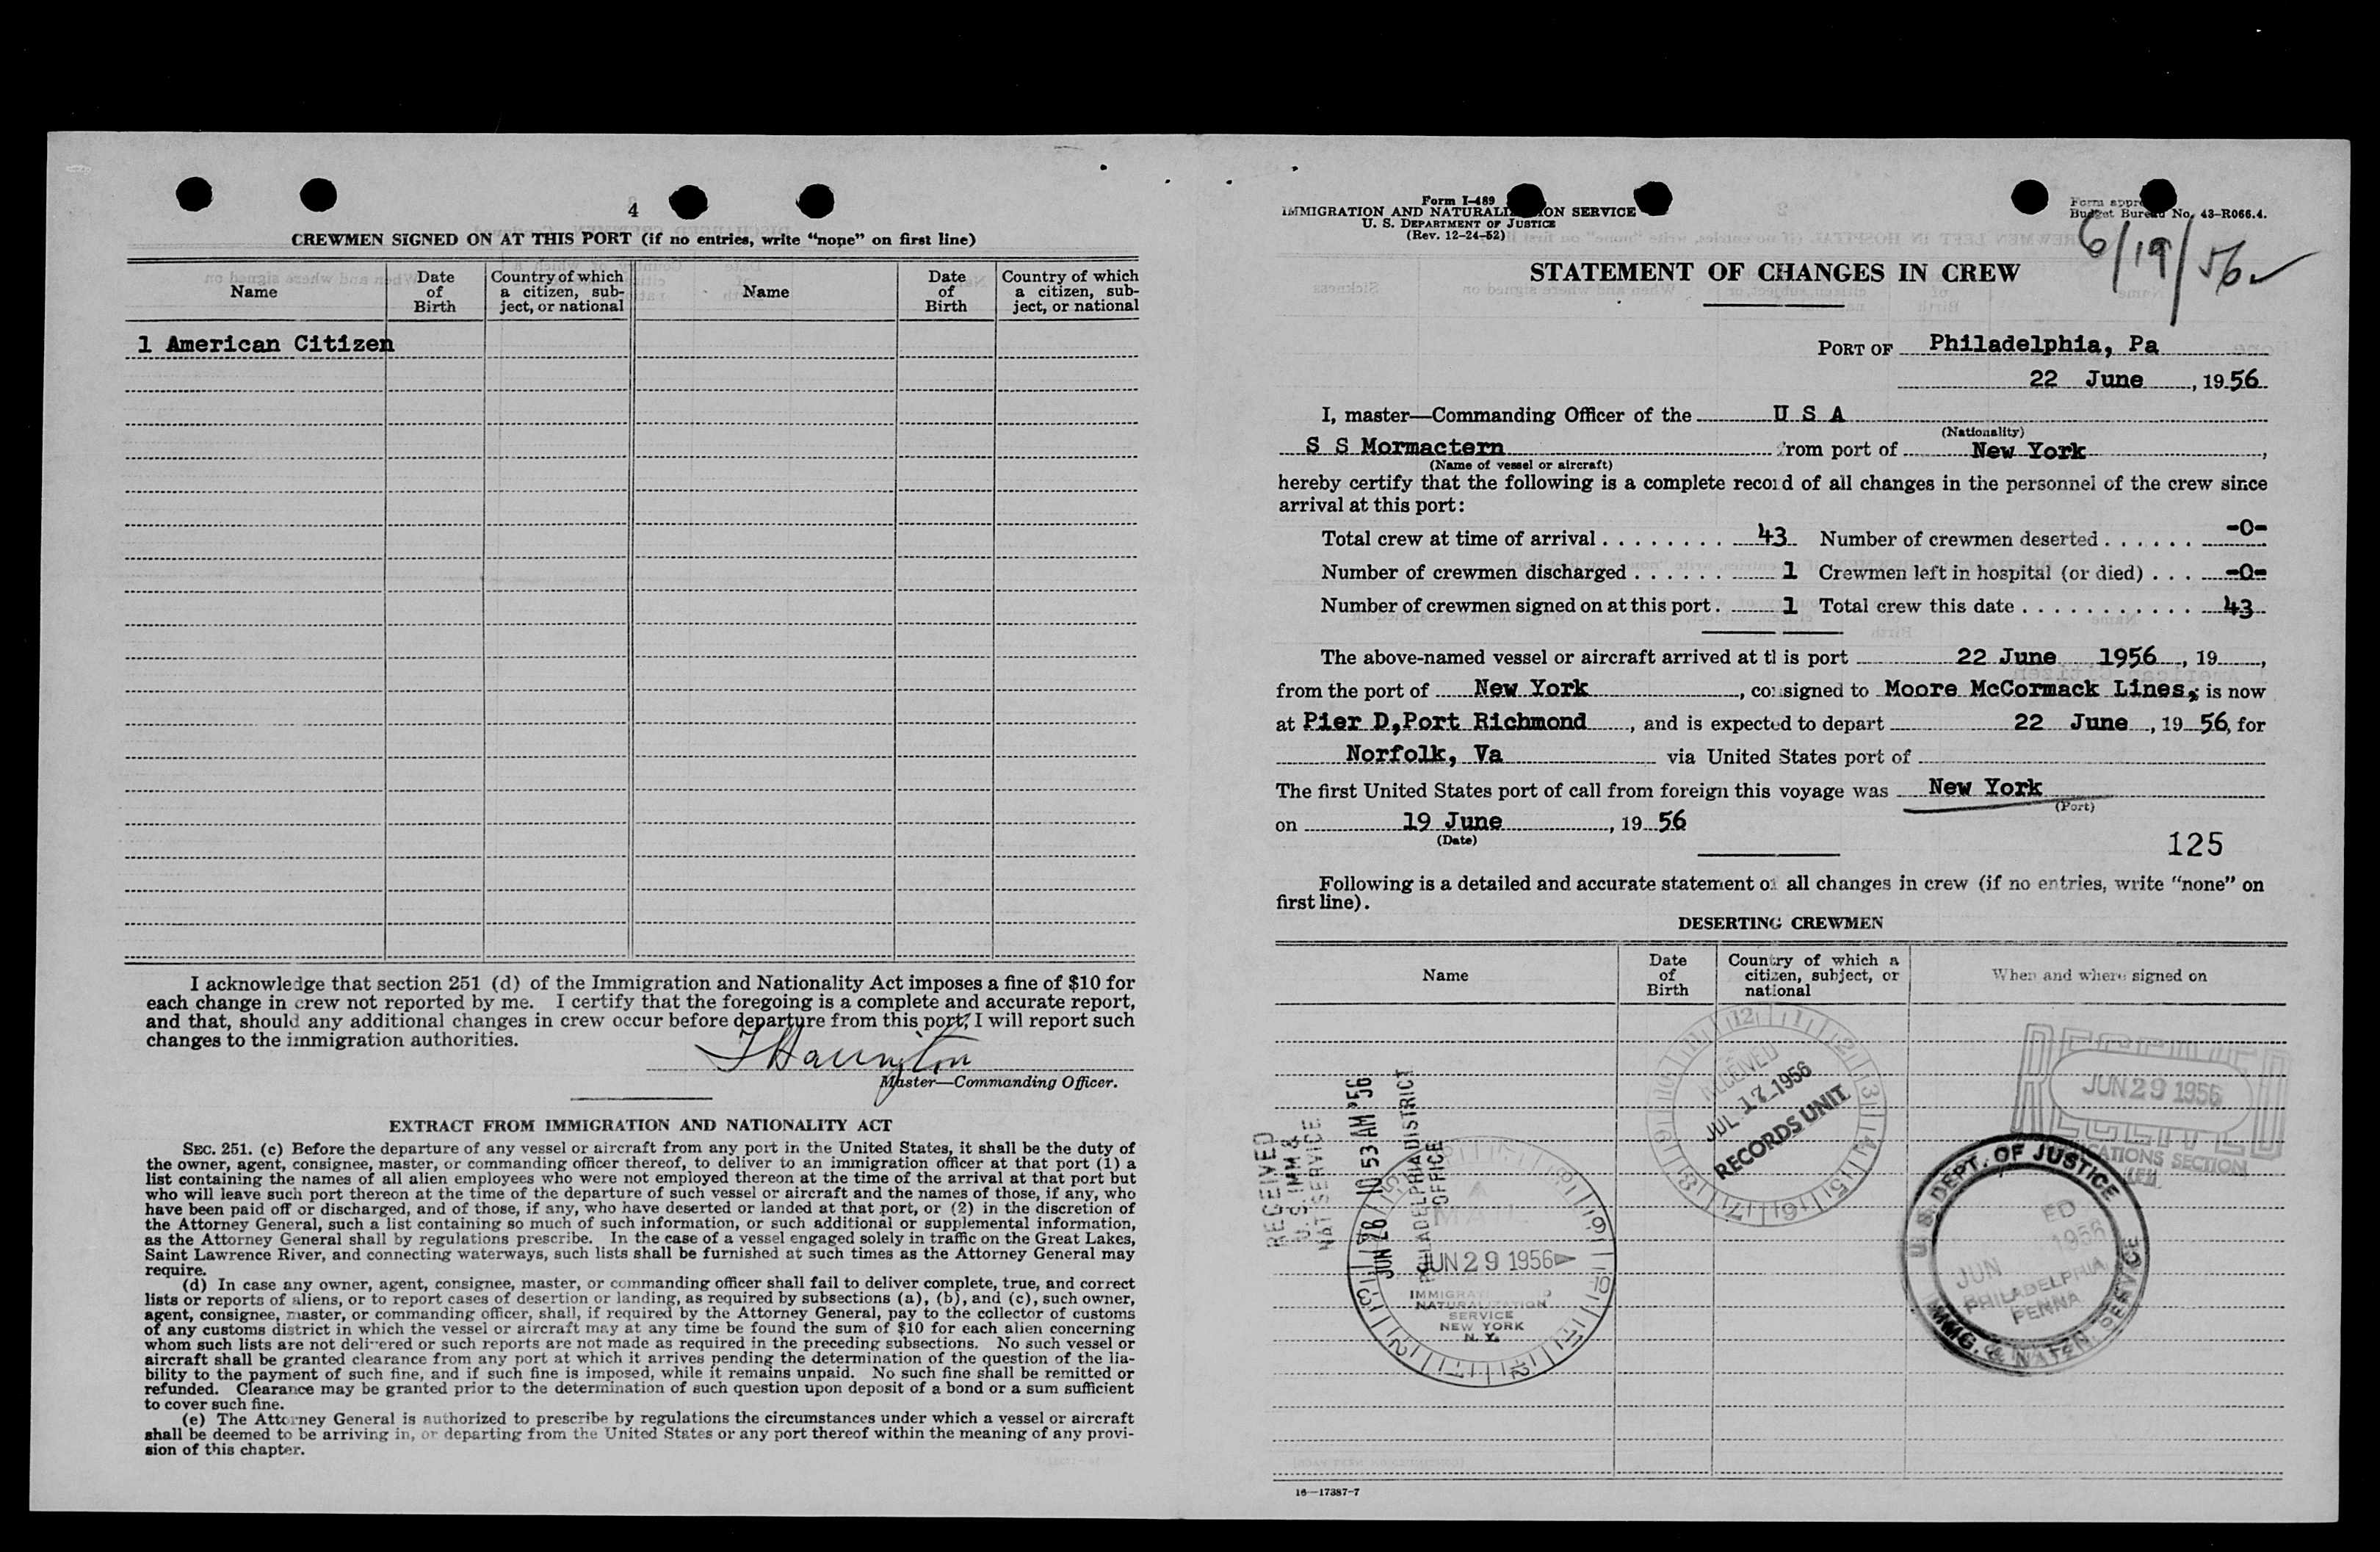 4
CREWMEN SIGNED ON AT THIS PORT (if no entries, write "none" on first line)
Name | Date of Birth | Country of which a citizen, subject, or national | Name | Date of Birth | Country of which a citizen, subject, or national
1 American Citizen
I acknowledge that section 251 (d) of the Immigration and Nationality Act imposes a fine of $10 for
each change in crew not reported by me. I certify that the foregoing is a complete and accurate report,
and that, should any additional changes in crew occur before departure from this port, I will report such
changes to the immigration authorities.
Master—Commanding Officer.
EXTRACT FROM IMMIGRATION AND NATIONALITY ACT
SEC. 251. (c) Before the departure of any vessel or aircraft from any port in the United States, it shall be the duty of
the owner, agent, consignee, master, or commanding officer thereof, to deliver to an immigration officer at that port (1) a
list containing the names of all alien employees who were not employed thereon at the time of the arrival at that port but
who will leave such port thereon at the time of the departure of such vessel or aircraft and the names of those, if any, who
have been paid off or discharged, and of those, if any, who have deserted or landed at that port, or (2) in the discretion of
the Attorney General, such a list containing so much of such information, or such additional or supplemental information,
as the Attorney General shall by regulations prescribe. In the case of a vessel engaged solely in traffic on the Great Lakes,
Saint Lawrence River, and connecting waterways, such lists shall be furnished at such times as the Attorney General may
require.
(d) In case any owner, agent, consignee, master, or commanding officer shall fail to deliver complete, true, and correct
lists or reports of aliens, or to report cases of desertion or landing, as required by subsections (a), (b), and (c), such owner,
agent, consignee, master, or commanding officer, shall, if required by the Attorney General, pay to the collector of customs
of any customs district in which the vessel or aircraft may at any time be found the sum of $10 for each alien concerning
whom such lists are not delivered or such reports are not made as required in the preceding subsections. No such vessel or
aircraft shall be granted clearance from any port at which it arrives pending the determination of the question of the lia-
bility to the payment of such fine, and if such fine is imposed, while it remains unpaid. No such fine shall be remitted or
refunded. Clearance may be granted prior to the determination of such question upon deposit of a bond or a sum sufficient
to cover such fine.
(e) The Attorney General is authorized to prescribe by regulations the circumstances under which a vessel or aircraft
shall be deemed to be arriving in, or departing from the United States or any port thereof within the meaning of any provi-
sion of this chapter.
Form I-489
IMMIGRATION AND NATURALIZATION SERVICE
U. S. DEPARTMENT OF JUSTICE
(Rev. 12-24-52)
Form appr
Budget Bureau No. 43-R066.4.
6/19/56
STATEMENT OF CHANGES IN CREW
PORT OF Philadelphia, Pa
22 June, 1956
I, master—Commanding Officer of the U S A
(Nationality)
S S Mormactern from port of New York,
(Name of vessel or aircraft)
hereby certify that the following is a complete record of all changes in the personnel of the crew since
arrival at this port:
Total crew at time of arrival . . . . . . . . 43 Number of crewmen deserted . . . . . . -0-
Number of crewmen discharged . . . . . . 1 Crewmen left in hospital (or died) . . . -0-
Number of crewmen signed on at this port . 1 Total crew this date . . . . . . . . . . . 43
The above-named vessel or aircraft arrived at this port 22 June 1956, 19
from the port of New York, consigned to Moore McCormack Lines, is now
at Pier D,Port Richmond, and is expected to depart 22 June, 1956, for
Norfolk, Va via United States port of
The first United States port of call from foreign this voyage was New York
(Port)
on 19 June, 19 56
(Date)
125
Following is a detailed and accurate statement of all changes in crew (if no entries, write "none" on
first line).
DESERTING CREWMEN
Name | Date of Birth | Country of which a citizen, subject, or national | When and where signed on
RECEIVED
JUL 17 1956
RECORDS UNIT
JUN 29 1956
RECEIVED
U.S. IMM &
NAT SERVICE
JUN 28 10 53 AM '56
PHILADELPHIA DISTRICT
OFFICE
MAIL
JUN 29 1956
NATURALIZATION
SERVICE
NEW YORK
N. Y.
U. S. DEPT. OF JUSTICE
JUN 1956
PHILADELPHIA
PENNA
IMMIG. & NATZN. SERVICE
16—17387-7